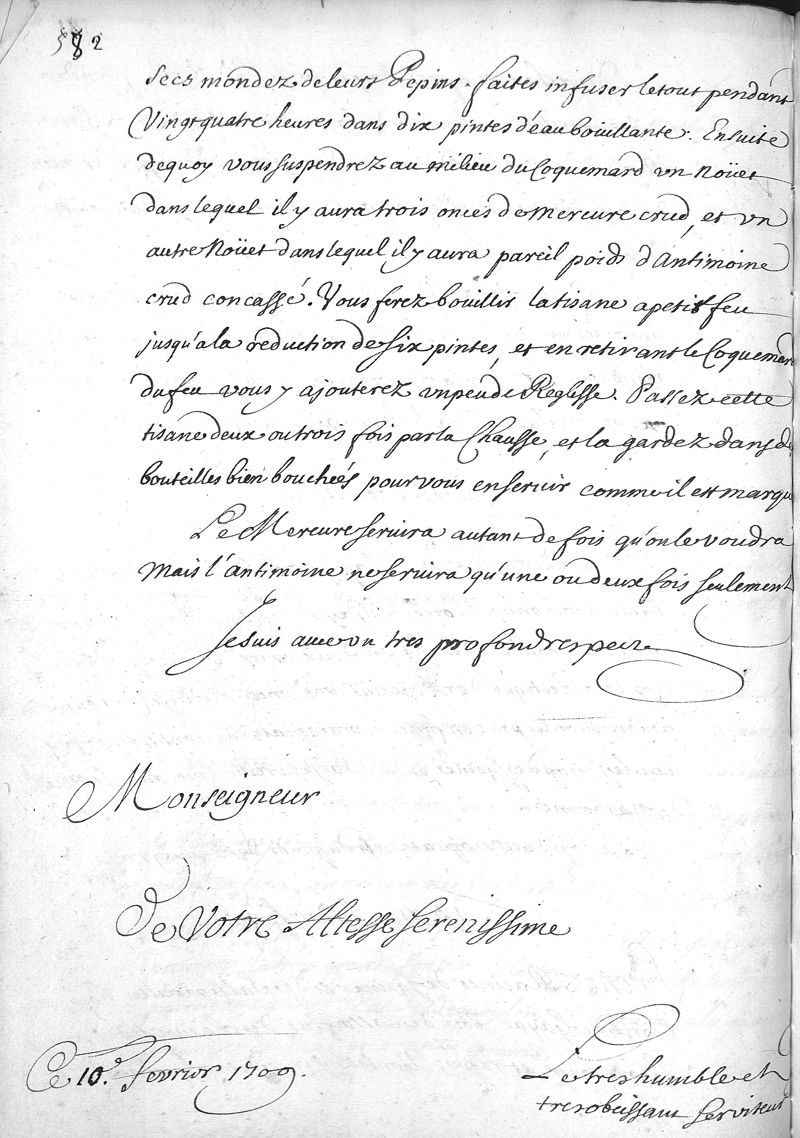 582
secs mondez de leurs Pepins. faites infuser le tout pendant
Vingt quatre heures dans dix pintes d'eau bouillante. Ensuite
dequoy vous suspendrez au milieu du Coquemard un Noüet
dans lequel il y aura trois onces de mercure crud, et un
autre Noüet dans lequel il y aura pareil poids d'antimoine
crud concassé. Vous ferez bouillir la tisane a petit feu
jusqu'a la reduction de six pintes, et en retirant le Coquemard
du feu vous y ajouterez un peu de Reglisse. Passez cette
tisane deux ou trois fois par la Chausse, et la gardez dans de
bouteilles bien bouchées pour vous en servir comme il est marqu
Le Mercure servira autant de fois qu'on le voudra
Mais l'antimoine ne servira qu'une ou deux fois seulement
Je suis avec un tres profond respect
Monseigneur
De Votre Altesse Serenissime
Ce 10.e fevrier 1709.
Le tres humble et
tres obeissant serviteur